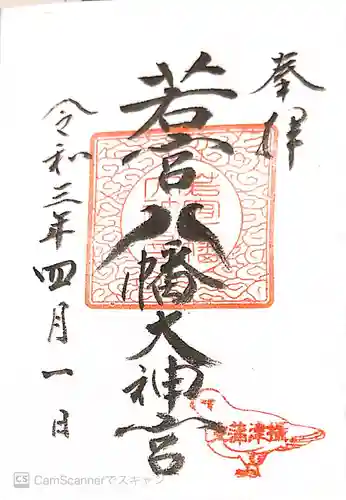 奉拝
若宮八幡大神宮
令和三年四月一日
CS CamScannerでスキャン